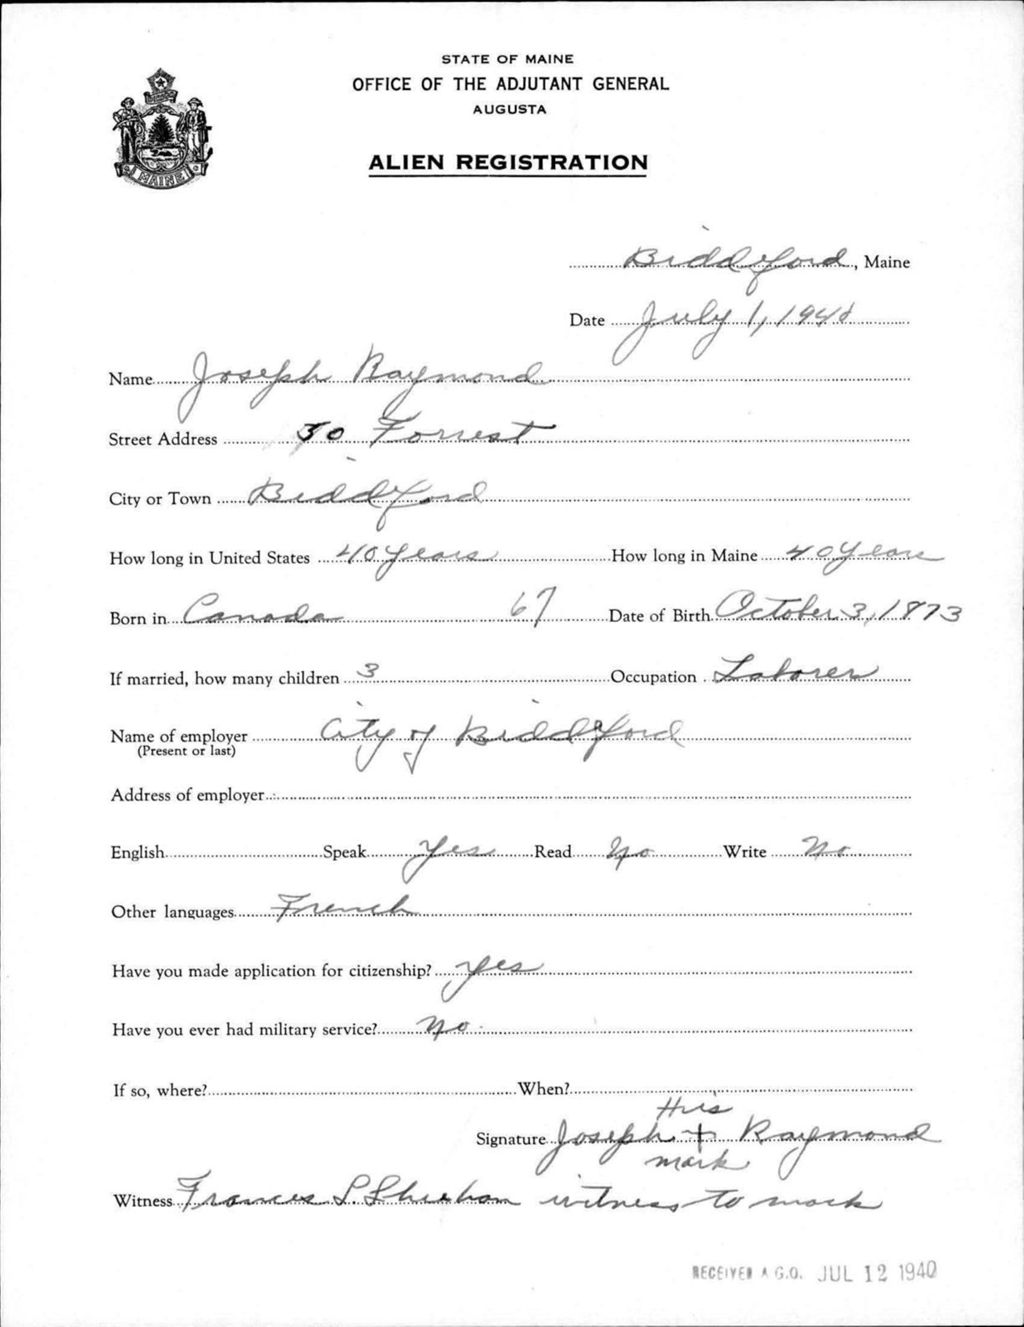 STATE OF MAINE
OFFICE OF THE ADJUTANT GENERAL
AUGUSTA
ALIEN REGISTRATION
MAINE
Biddeford, Maine
Date July 1, 1940
Name Joseph Raymond
Street Address 30 Forrest
City or Town Biddeford
How long in United States 40 years How long in Maine 40 years
Born in Canada 67 Date of Birth October 3, 1873
If married, how many children 3 Occupation Laborer
Name of employer City of Biddeford
(Present or last)
Address of employer
English Speak Yes Read No Write No
Other languages French
Have you made application for citizenship? Yes
Have you ever had military service? No
If so, where? When?
His
Signature Joseph + Raymond
mark
Witness Frances L Sheehan witness to mark
RECEIVED A.G.O. JUL 12 1940